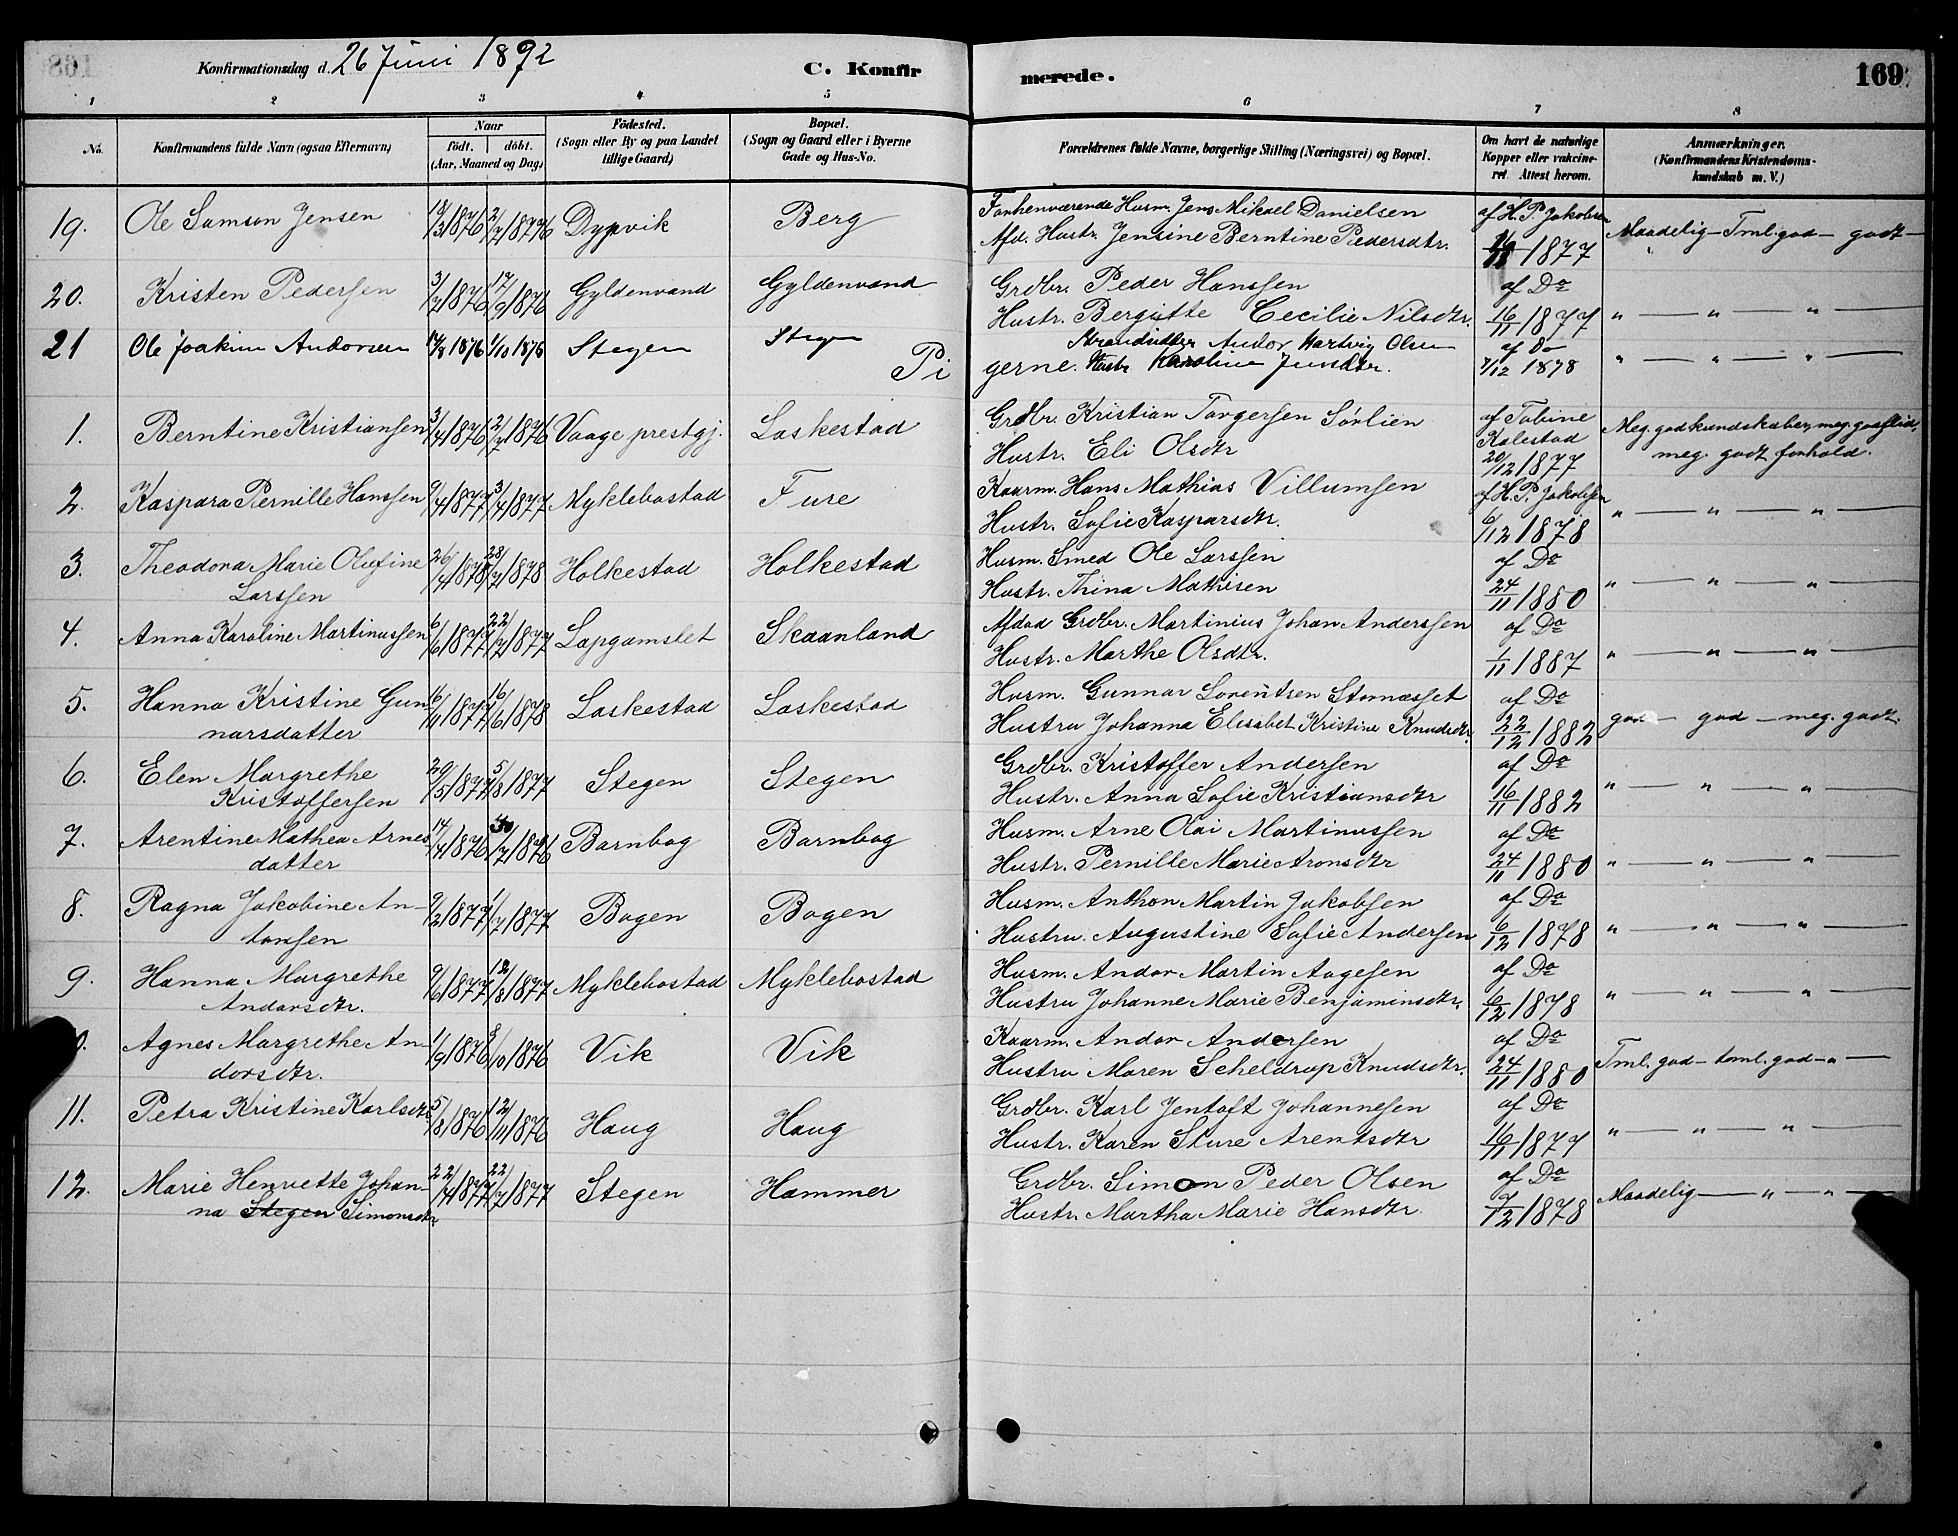 Konfirmationsdag d. 26 Juni 1892
C. Konfirmerede.
169
1 2 3 4 5 6 7 8
No. Konfirmandens fulde Navn (ogsaa Efternavn) Naar födt. döbt. (Aar, Maaned og Dag) Födested. (Sogn eller By og paa Landet tillige Gaard) Bopæl. (Sogn og Gaard eller i Byerne Gade og Hus-No.
Forældrenes fulde Navne, borgerlige Stilling (Næringsvei) og Bopæl. Om havt de naturlige Kopper eller vakcineret. Attest herom. Anmærkninger. (Konfirmandens Kristendomskundskab m. V.)
19. Ole Samson Jensen 18/3 1876 2/7 1876 Dypvik Berg Forhenværende Husm. Jens Mikael Danielsen af H. P. Jakobsen Maadelig — Tml. god — godt —
Afd. Hustr. Jensine Berntine Pedersdtr. 16/11 1877
20. Kristen Pedersen 3/7 1876 17/9 1876 Gyldenvand Gyldenvand Grdbr. Peder Hanssen af Do
Hustr. Bergitte Cecilie Nilsdtr. 16/11 1877 " — " — " —
21 Ole Joakim Andorsen 14/8 1876 1/10 1876 Stegen Stegen Strandsidder Andor Hartvig Olsen af Do
Hustr. Karoline Jensdtr. 7/12 1878 " — " — " —
Pigerne.
1. Berntine Kristiansen 3/4 1876 2/7 1876 Vaage prestgj. Laskestad Grdbr. Kristian Torgersen Sörlien af Tobine Kalestad Meg. god kundskaber, meg. god flid,
Hustr. Eli Olsdtr 20/12 1877 meg. godt forhold.
2. Kaspara Pernille Hanssen 9/4 1877 3/4 1877 Myklebostad Fure Kaarm. Hans Mathias Villumsen af H. P. Jakobsen
Hustr. Sofie Kasparsdtr. 6/12 1878 " — " — " —
3. Theodora Marie Olufine 26/4 1878 28/7 1878 Holkestad Holkestad Husm. Smed Ole Larssen af Do
Larssen Hustr. Thina Mathisen 24/11 1880 " — " — " —
4. Anna Karoline Martinussen 6/6 1877 22/7 1877 Lapgamslet Skaanland Afdød Grdbr. Martinius Johan Anderssen af Do
Hustr. Marthe Olsdtr. 1/11 1887 " — " — " —
5. Hanna Kristine Gun- 16/11 1877 16/6 1878 Laskestad Laskestad Husm. Gunnar Lorentsen Stornæsset af Do
narsdatter Hustru Johanna Elisabet Kristine Knudsdtr. 22/12 1882 god — god — meg. godt.
6. Elen Margrethe 29/5 1877 5/8 1877 Stegen Stegen Grdbr. Kristoffer Andersen af Do
Kristoffersen Hustr. Anna Sofie Kristiansdtr 16/11 1882 " — " — " —
7. Arentine Mathea Arnes 17/4 1876 30/7 1876 Barnbog Barnbog Husm. Arne Olai Martinussen af Do
datter Hustr. Pernille Marie Aronsdtr 24/11 1880 " — " — " —
8. Ragna Jakobine An- 9/2 1877 1/7 1877 Bogen Bogen Husm. Anthon Martin Jakobsen af Do
tonsen Hustru. Augustine Sofie Andersen 6/12 1878 " — " — " —
9. Hanna Margrethe 9/6 1877 12/8 1877 Myklebostad Myklebostad Husm. Andor Martin Aagesen af Do
Andorsdtr. Hustru Johanne Marie Benjaminsdtr. 6/12 1878 " — " — " —
0. Agnes Margrethe An- 1/9 1876 8/10 1876 Vik Vik Kaarm. Andor Andersen af Do
dorsdtr. Hustru Maren Scheldrup Knudsdtr. 24/11 1880 Tml. god — tml. god — " —
11. Petra Kristine Karlsdtr 5/8 1876 12/11 1876 Haug Haug Grdbr. Karl Jentoft Johannesen af Do
Hustr. Karen Sture Arentsdtr 16/11 1877 " — " — " — "
12. Marie Henriette Johan- 22/4 1877 22/7 1877 Stegen Hammer Grdbr. Simon Peder Olsen af Do
na Stegen Simonsdtr Hustr. Martha Marie Hansdtr. 7/12 1878 Maadelig — " — " —